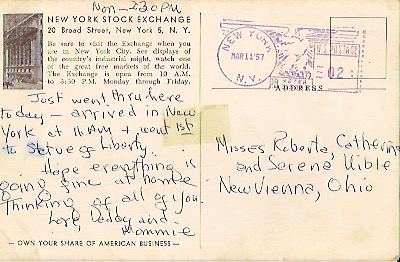 Mon - 2:30 PM
NEW YORK STOCK EXCHANGE
20 Broad Street, New York 5, N. Y.
Be sure to visit the Exchange when you
are in New York City. See displays of
the country's industrial might, watch one
of the great free markets of the world.
The Exchange is open from 10 A.M.
to 3:30 P.M. Monday through Friday.
Just went thru here
today - arrived in New
York at 11 AM + went 1st
to Statue of Liberty.
Hope everything is
going fine at home
Thinking of all of you.
Love, Daddy and
Mommie
— OWN YOUR SHARE OF AMERICAN BUSINESS —
NEW YORK
MAR 11 '57
N.Y.
U.S. POSTAGE
02
METER
ADDRESS
Misses Roberta, Catherine
and Serena Uible
New Vienna, Ohio